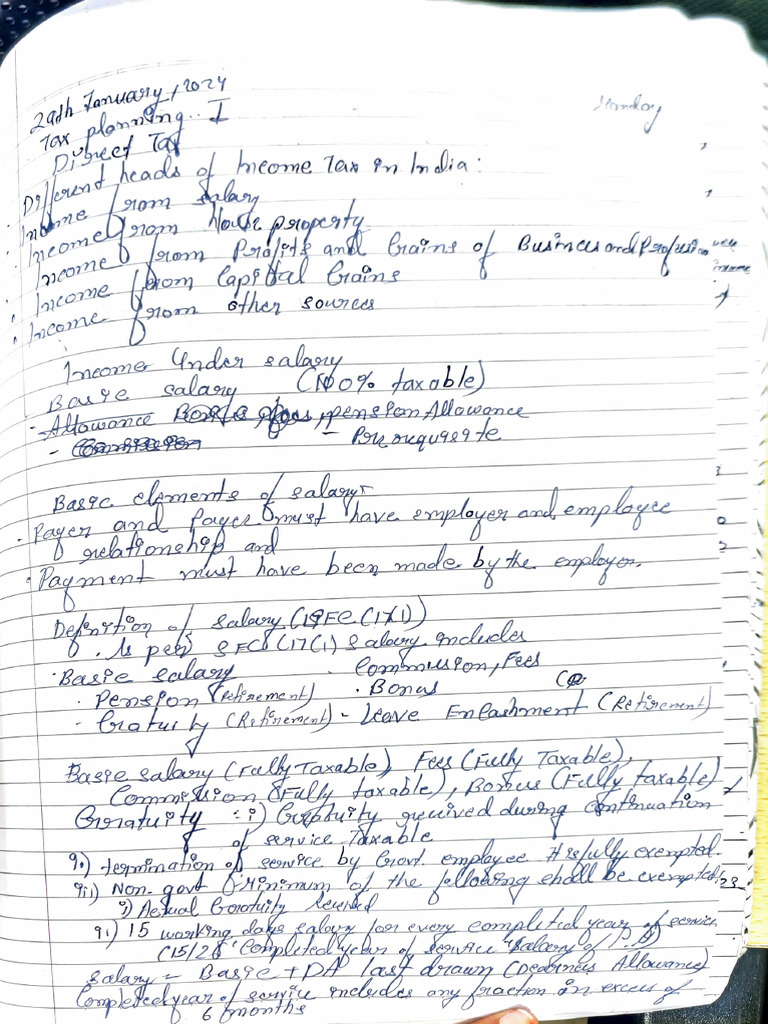 29th January, 2024
Monday
Tax planning.. I
Direct Tax
Different heads of Income Tax in India:
Income from salary
Income from House property
Income from Profits and Gains of Business and Profession
Income from Capital Gains
Income from other sources
Income Under salary
Basic salary (100% taxable)
- Allowance Bonus, pension Allowance
- Commission - Prerequisite
Basic elements of salary-
. Payer and Payee must have employer and employee
relationship and
. Payment must have been made by the employer.
Definition of salary (SEC (17(1))
. As per SEC (17(1) Salary includes
. Basic salary . Commission, Fees
. Pension (Retirement) . Bonus
- Gratuity (Retirement) - Leave Encashment (Retirement)
Basic salary (Fully Taxable), Fees (Fully Taxable),
Commission (Fully taxable), Bonus (Fully taxable)
Gratuity : i) Gratuity received during continuation
of service taxable
ii) termination of service by Govt. employee. It is fully exempted.
iii) Non. govt Minimum of the following shall be exempted,
i) Actual Gratuity Received
ii) 15 working days salary for every completed year of service
(15/26 Completed year of service Salary of
Salary = Basic + DA last drawn (Dearness Allowance)
Completed year of service includes any fraction in excess of
6 months